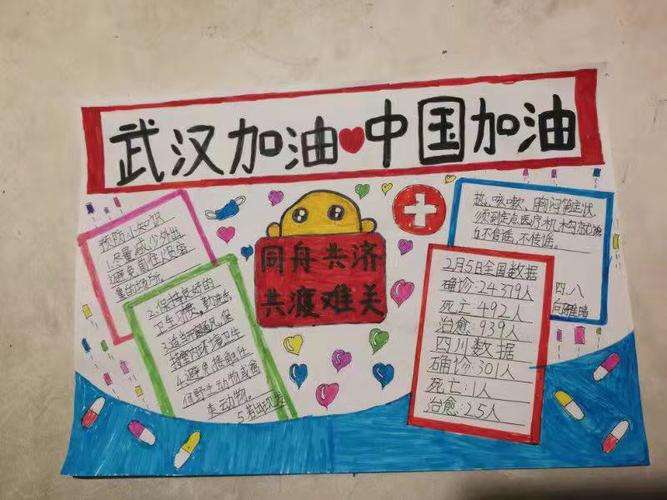 武汉加油❤中国加油
预防小知识
1.尽量减少外出
避免前往人员密
集的场所。
2.保持良好的
卫生习惯，勤洗手。
3.适当开窗通风，保
持室内环境卫生
4.避免接触任
何野生动物或禽
类动物。
5.若出现发
同舟共济
共渡难关
热、咳嗽、胸闷等症状，
须到定点医疗机构就诊
6.不信谣、不传谣。
四.八
2月5日全国数据
确诊:24379人
死亡:492人
治愈:939人
四川数据
确诊:301人
死亡:1人
治愈:25人